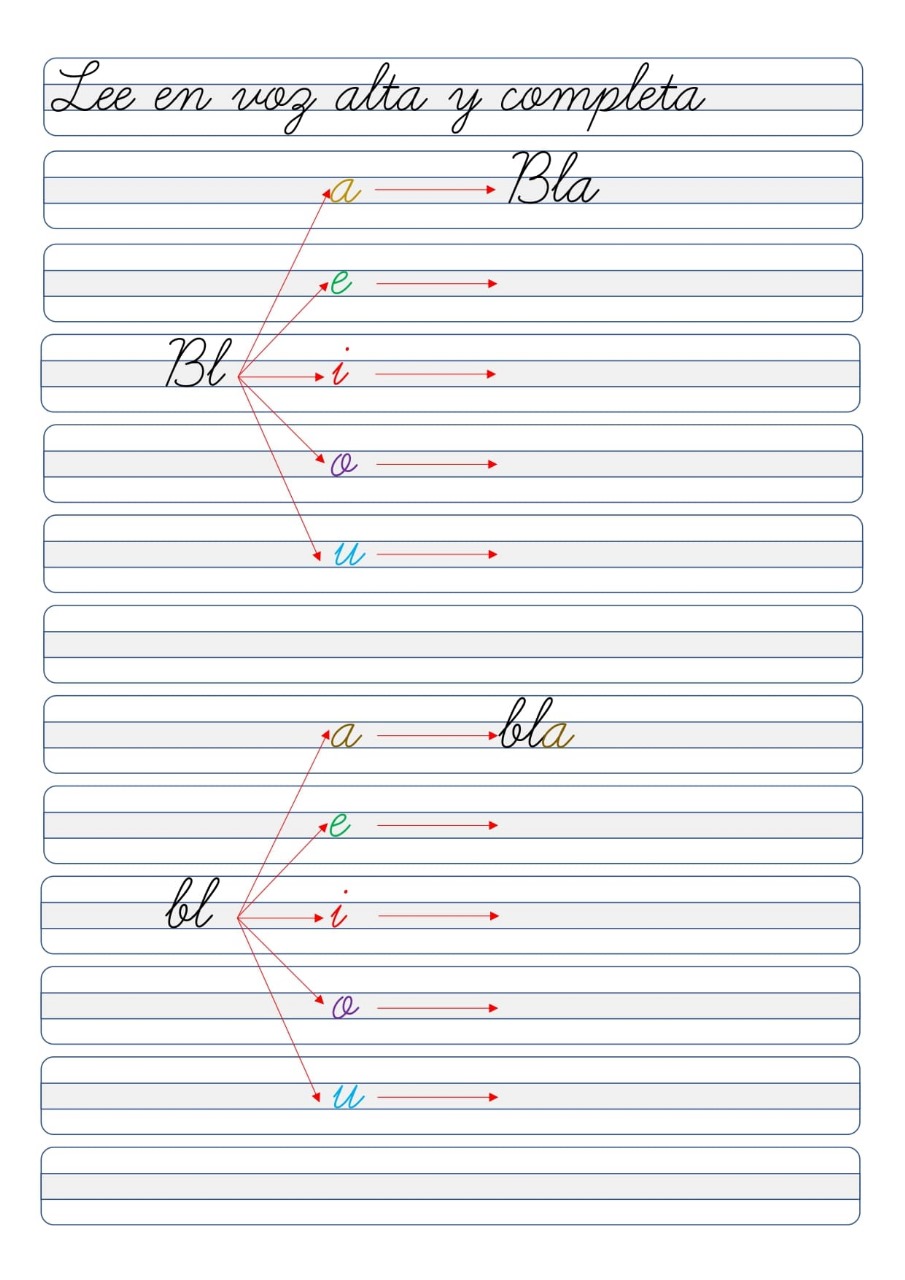 Lee en voz alta y completa
a Bla
e
Bl i
o
u
a bla
e
bl i
o
u